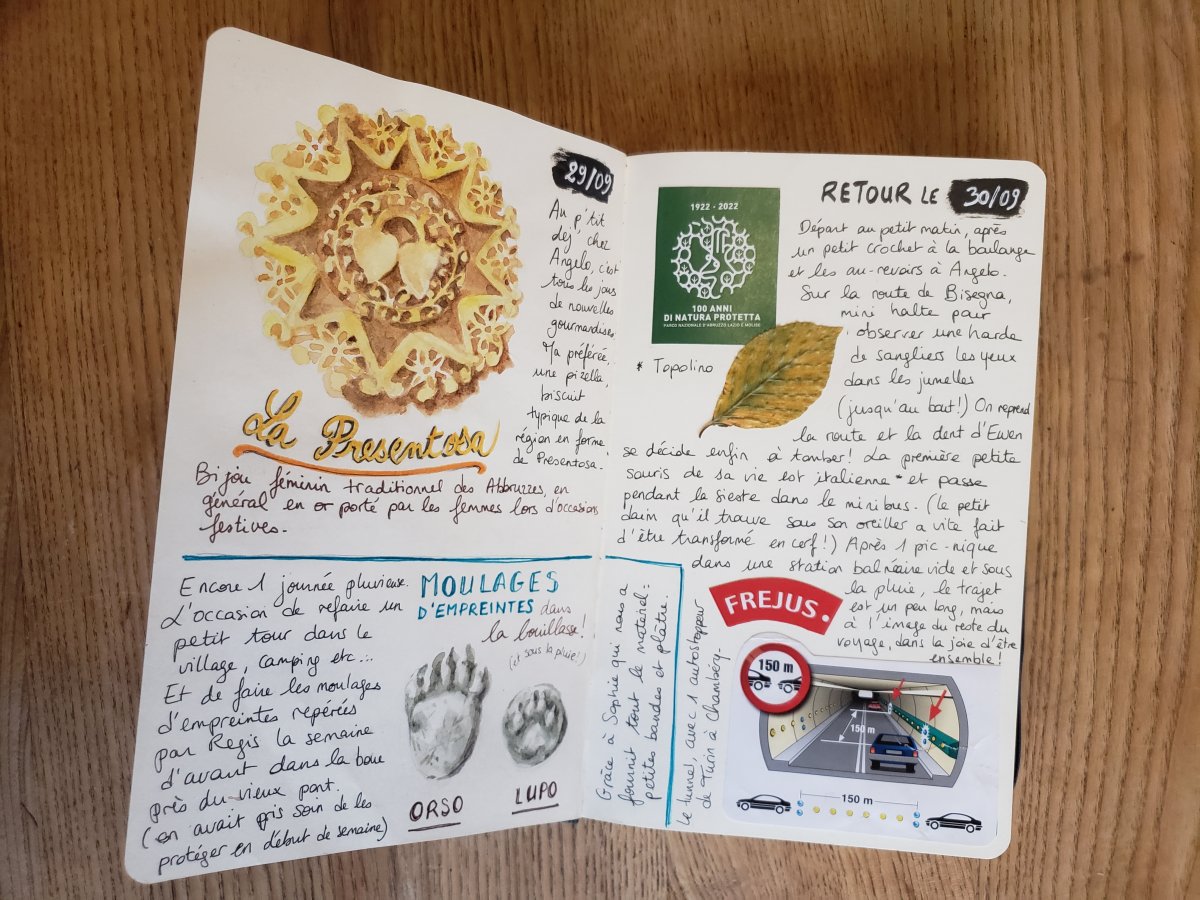 29/09
Au p'tit
dej chez
Angelo, c'est
tous les jours
de nouvelles
gourmandises
Ma préférée,
une pizella,
biscuit
typique de la
région en forme
de Presentosa.
La Presentosa
Bijou féminin traditionnel des Abbruzzes, en
général en or porté par les femmes lors d'occasions
festives.
Encore 1 journée pluvieuse.
L'occasion de refaire un
petit tour dans le
village, camping etc...
Et de faire les moulages
d'empreintes repérées
par Regis la semaine
d'avant dans la boue
près du vieux pont.
(on avait pris soin de les
protéger en début de semaine)
MOULAGES
D'EMPREINTES dans
la bouillasse!
(et sous la pluie!)
ORSO
LUPO
Grâce à Sophie qui nous a
fournit tout le matériel:
petites bandes et plâtre.
1922 - 2022
100 ANNI
DI NATURA PROTETTA
PARCO NAZIONALE D'ABRUZZO LAZIO E MOLISE
* Topolino
RETOUR LE 30/09
Départ au petit matin, après
un petit crochet à la boulange
et les au-revoirs à Angelo.
Sur la route de Bisegna,
mini halte pour
observer une harde
de sangliers les yeux
dans les jumelles
(jusqu'au bout!) On reprend
la route et la dent d'Ewen
se décide enfin à tomber! La première petite
souris de sa vie est italienne* et passe
pendant la sieste dans le minibus. (le petit
daim qu'il trouve sous son oreiller a vite fait
d'être transformé en cerf!) Après 1 pic-nique
dans une station balnéaire vide et sous
la pluie, le trajet
est un peu long, mais
à l'image du reste du
voyage, dans la joie d'être
ensemble!
FREJUS.
le tunnel, avec 1 autostoppeur
de Turin à Chambéry.
150 m
150 m
150 m